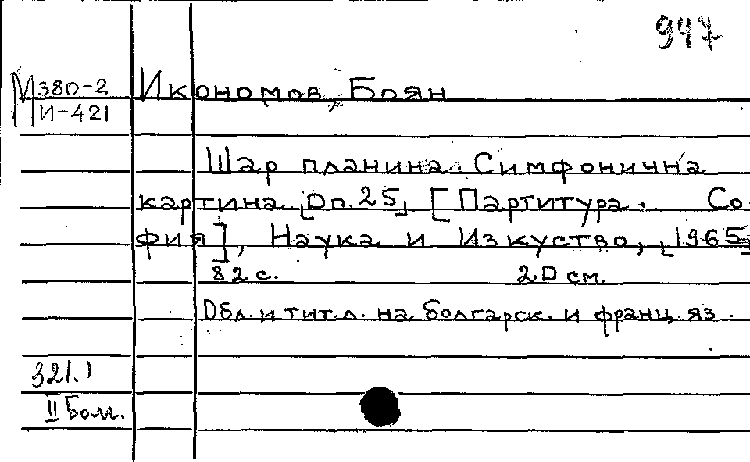 947
М380-2
И-421
Икономов, Боян
Шар планина. Симфонична
картина. [Оп. 25] [Партитура. Со-
фия], Наука и Изкуство, [1965]
82 с. 20 см.
Обл. и тит. л. на болгарск. и франц. яз.
321.1